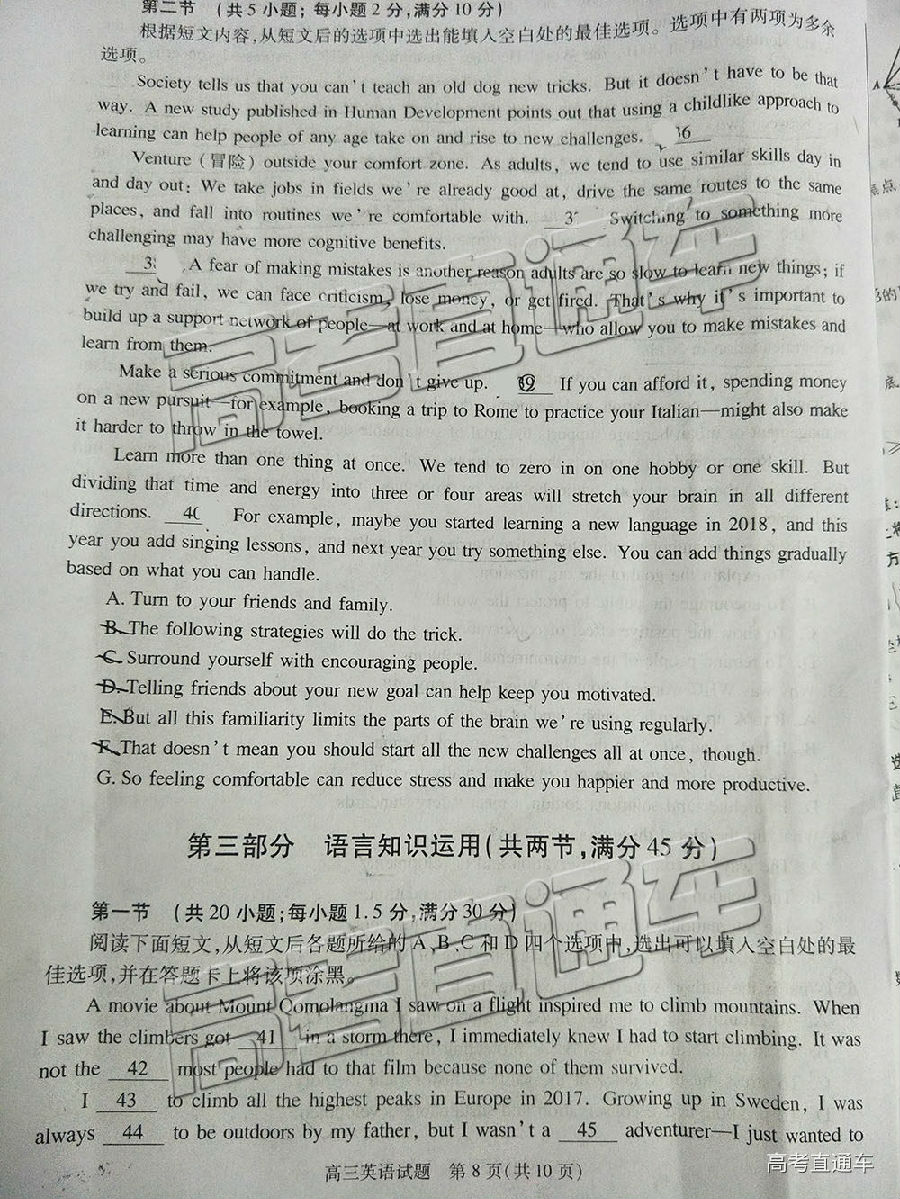 第二节 (共5小题;每小题2分,满分10分)
根据短文内容,从短文后的选项中选出能填入空白处的最佳选项。选项中有两项为多余
选项。
Society tells us that you can't teach an old dog new tricks. But it doesn't have to be that
way. A new study published in Human Development points out that using a childlike approach to
learning can help people of any age take on and rise to new challenges. 36
Venture (冒险) outside your comfort zone. As adults, we tend to use similar skills day in
and day out: We take jobs in fields we're already good at, drive the same routes to the same
places, and fall into routines we're comfortable with. 37 Switching to something more
challenging may have more cognitive benefits.
38 A fear of making mistakes is another reason adults are so slow to learn new things; if
we try and fail, we can face criticism, lose money, or get fired. That's why it's important to
build up a support network of people—at work and at home—who allow you to make mistakes and
learn from them.
Make a serious commitment and don't give up. 39 If you can afford it, spending money
on a new pursuit—for example, booking a trip to Rome to practice your Italian—might also make
it harder to throw in the towel.
Learn more than one thing at once. We tend to zero in on one hobby or one skill. But
dividing that time and energy into three or four areas will stretch your brain in all different
directions. 40 For example, maybe you started learning a new language in 2018, and this
year you add singing lessons, and next year you try something else. You can add things gradually
based on what you can handle.
A. Turn to your friends and family.
B. The following strategies will do the trick.
C. Surround yourself with encouraging people.
D. Telling friends about your new goal can help keep you motivated.
E. But all this familiarity limits the parts of the brain we're using regularly.
F. That doesn't mean you should start all the new challenges all at once, though.
G. So feeling comfortable can reduce stress and make you happier and more productive.
第三部分 语言知识运用(共两节,满分45分)
第一节 (共20小题;每小题1.5分,满分30分)
阅读下面短文,从短文后各题所给的A、B、C和D四个选项中,选出可以填入空白处的最
佳选项,并在答题卡上将该项涂黑。
A movie about Mount Qomolangma I saw on a flight inspired me to climb mountains. When
I saw the climbers got 41 in a storm there, I immediately knew I had to start climbing. It was
not the 42 most people had to that film because none of them survived.
I 43 to climb all the highest peaks in Europe in 2017. Growing up in Sweden, I was
always 44 to be outdoors by my father, but I wasn't a 45 adventurer—I just wanted to
高三英语试题 第8页(共10页)
高考直通车
高考直通车
高考直通车